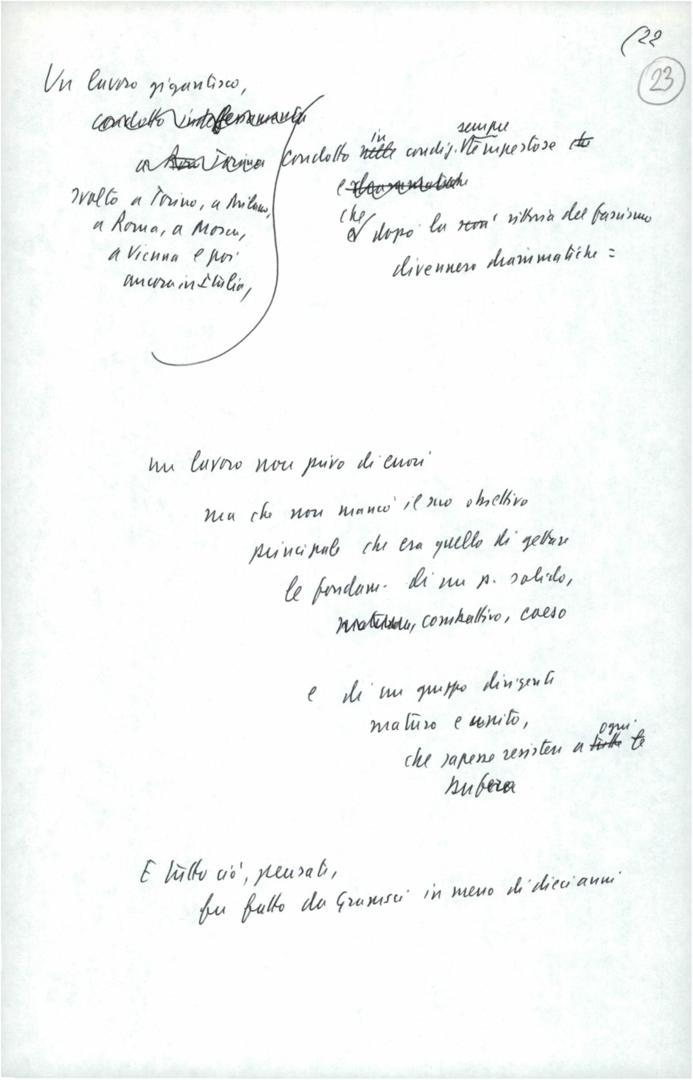 (22
23
Un lavoro gigantesco,
condotto
a Torino
svolto a Torino, a Milano,
a Roma, a Mosca,
a Vienna e poi
ancora in Italia,
sempre
in
condotto nelle condiz. tempestose che
e drammatiche
che
e dopo la vittoria del fascismo
divennero drammatiche =
un lavoro non privo di errori
ma che non mancò il suo obiettivo
principale che era quello di gettare
le fondam. di un p. solido,
maturo, combattivo, coeso
e di un gruppo dirigente
maturo e unito,
ogni
che sapesse resistere a tutte le
bufera
E tutto ciò, pensate,
fu fatto da Gramsci in meno di dieci anni